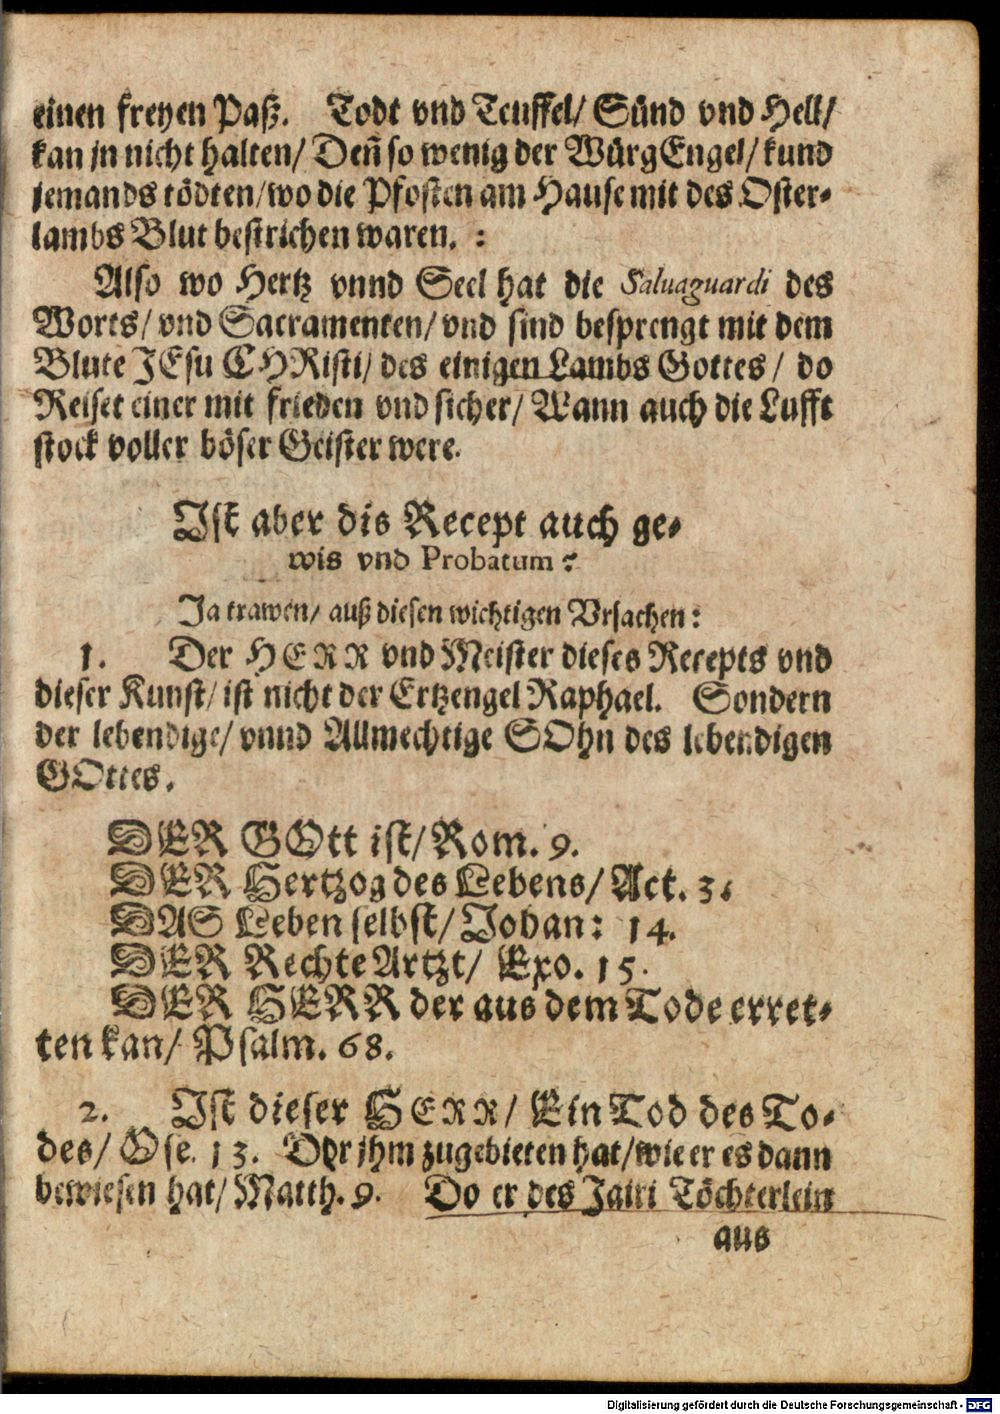 einen freyen Paß. Todt vnd Teuffel/ Sünd vnd Hell/
kan jn nicht halten/ Deñ so wenig der WürgEngel/ kund
jemands tödten/ wo die Pfosten am Hause mit des Oster-
lambs Blut bestrichen waren. :
Also wo Hertz vnnd Seel hat die Saluaguardi des
Worts/ vnd Sacramenten/ vnd sind besprengt mit dem
Blute JEsu CHRisti/ des einigen Lambs Gottes/ do
Reiset einer mit frieden vnd sicher/ Wann auch die Lufft
stock voller böser Geister were.
Ist aber dis Recept auch ge-
wis vnd Probatum?
Ja trawen/ auß diesen wichtigen Vrsachen:
1. Der HERR vnd Meister dieses Recepts vnd
dieser Kunst/ ist nicht der Ertzengel Raphael. Sondern
der lebendige/ vnnd Allmechtige SOhn des lebendigen
GOttes.
DER GOtt ist/ Rom. 9.
DER Hertzog des Lebens/ Act. 3.
DAS Leben selbst/ Johan: 14.
DER Rechte Artzt/ Exo. 15.
DER HERR der aus dem Tode erret-
ten kan/ Psalm. 68.
2. Ist dieser HERR/ Ein Tod des To-
des/ Ose. 13. Der jhm zugebieten hat/ wie er es dann
bewiesen hat/ Matth. 9. Do er des Jairi Töchterlein
aus
Digitalisierung gefördert durch die Deutsche Forschungsgemeinschaft - DFG